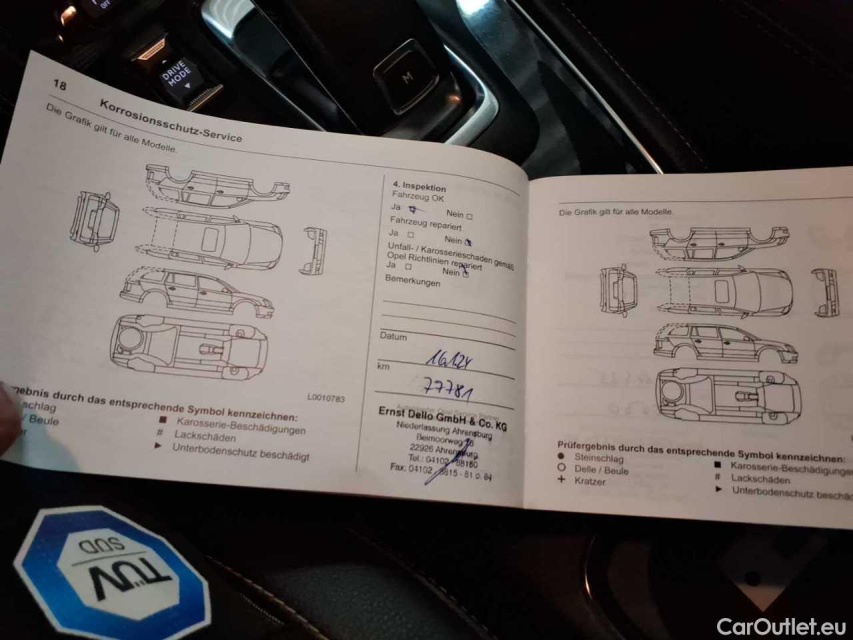 OFF
DRIVE
MODE
M
18
Korrosionsschutz-Service
Die Grafik gilt für alle Modelle.
L0010783
gebnis durch das entsprechende Symbol kennzeichnen:
schlag
/ Beule
er
■ Karosserie-Beschädigungen
# Lackschäden
► Unterbodenschutz beschädigt
4. Inspektion
Fahrzeug OK
Ja Nein
Fahrzeug repariert
Ja Nein
Unfall- / Karosserieschaden gemäß
Opel Richtlinien repariert
Ja Nein
Bemerkungen
Datum
km
77781
Ernst Dello GmbH & Co. KG
Niederlassung Ahrensburg
Beimoorweg
22926 Ahrensburg
Tel.: 04102
Fax: 04102
Die Grafik gilt für alle Modelle.
Prüfergebnis durch das entsprechende Symbol kennzeichnen:
● Steinschlag
○ Delle / Beule
+ Kratzer
■ Karosserie-Beschädigungen
# Lackschäden
► Unterbodenschutz beschäd
TÜV
SÜD
CarOutlet.eu